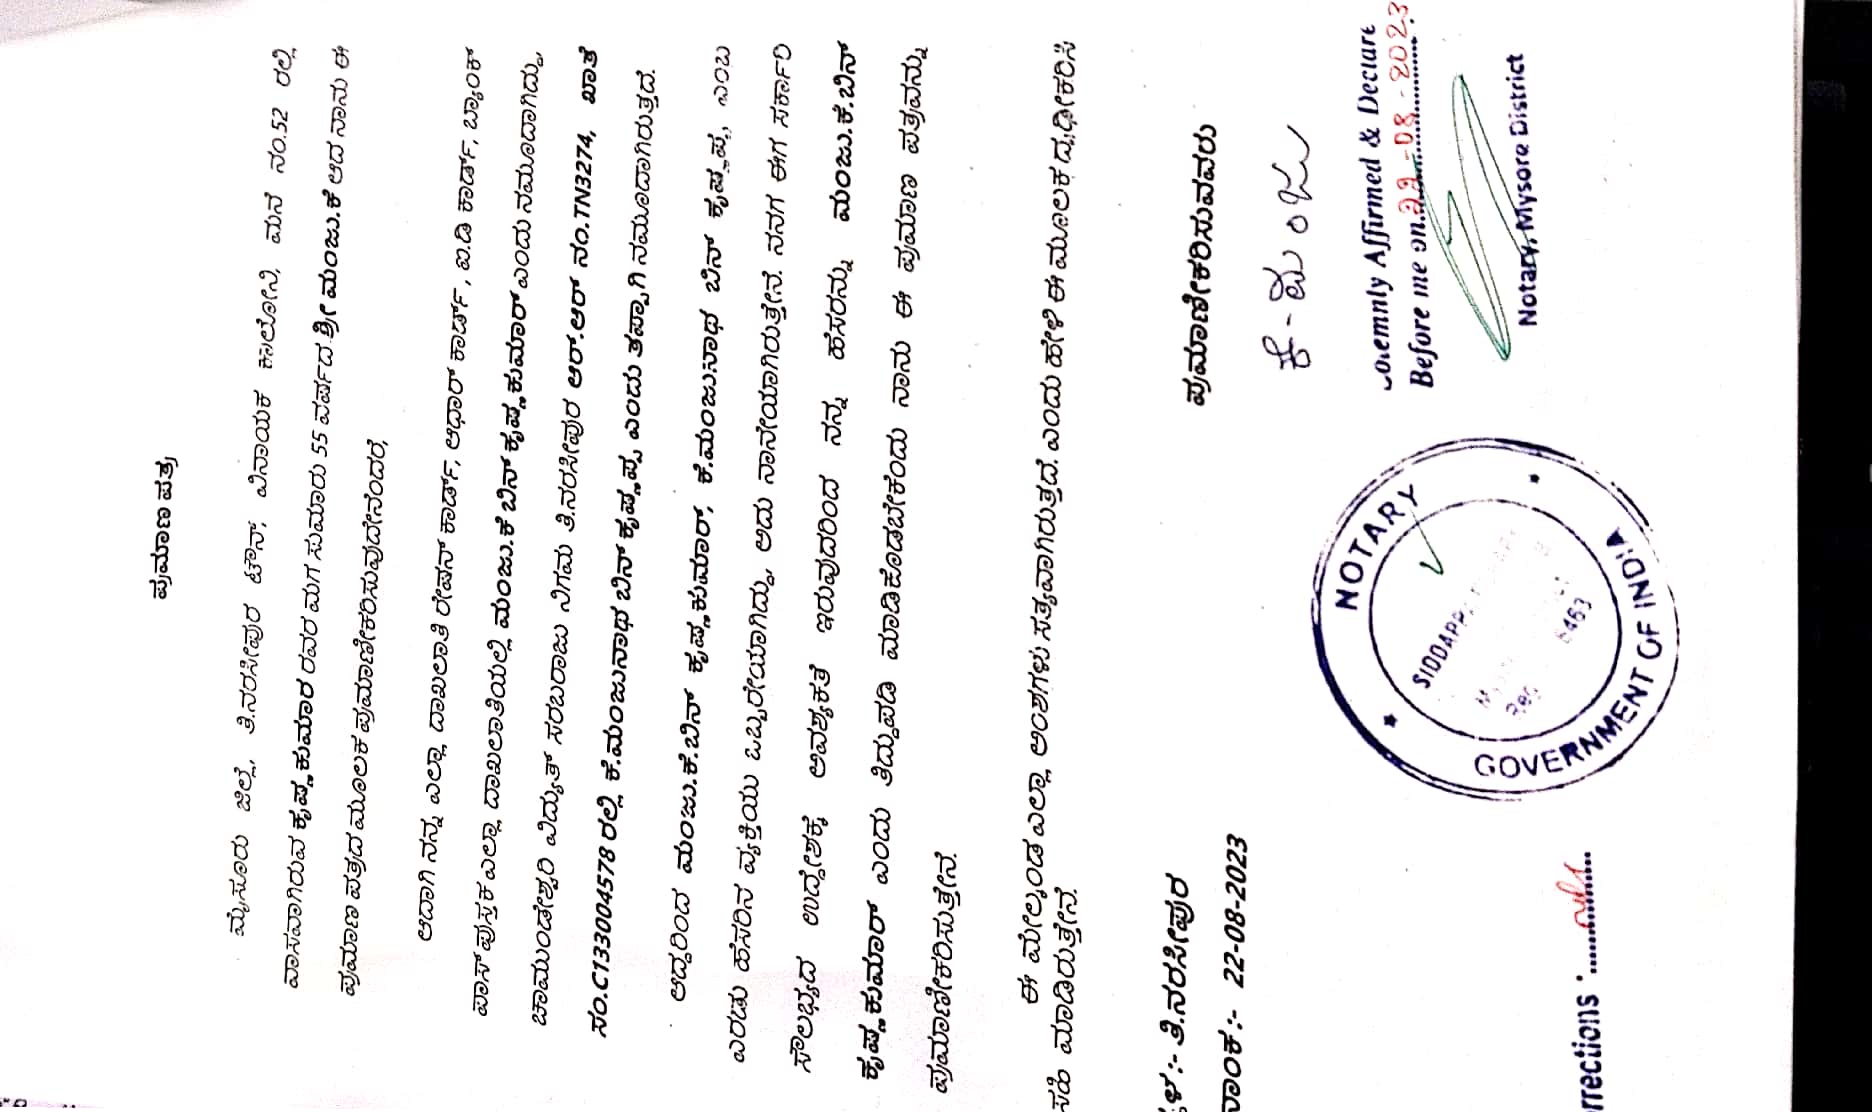 ಪ್ರಮಾಣ ಪತ್ರ
ಮೈಸೂರು ಜಿಲ್ಲೆ, ತಿ.ನರಸೀಪುರ ಟೌನ್, ವಿನಾಯಕ ಕಾಲೋನಿ, ಮನೆ ನಂ.52 ರಲ್ಲಿ
ವಾಸವಾಗಿರುವ ಕೃಷ್ಣಕುಮಾರ ರವರ ಮಗ ಸುಮಾರು 55 ವರ್ಷದ ಶ್ರೀ ಮಂಜು.ಕೆ ಆದ ನಾನು ಈ
ಪ್ರಮಾಣ ಪತ್ರದ ಮೂಲಕ ಪ್ರಮಾಣೀಕರಿಸುವುದೇನೆಂದರೆ,
ಆದಾಗಿ ನನ್ನ ಎಲ್ಲಾ ದಾಖಲಾತಿ ರೇಷನ್ ಕಾರ್ಡ್, ಆಧಾರ್ ಕಾರ್ಡ್, ಐ.ಡಿ ಕಾರ್ಡ್, ಬ್ಯಾಂಕ್
ಪಾಸ್ ಪುಸ್ತಕ ಎಲ್ಲಾ ದಾಖಲಾತಿಯಲ್ಲಿ ಮಂಜು.ಕೆ ಬಿನ್ ಕೃಷ್ಣಕುಮಾರ್ ಎಂದು ನಮೂದಾಗಿದ್ದು,
ಚಾಮುಂಡೇಶ್ವರಿ ವಿದ್ಯುತ್ ಸರಬರಾಜು ನಿಗಮ ತಿ.ನರಸೀಪುರ ಆರ್.ಆರ್ ನಂ.TN3274, ಖಾತೆ
ನಂ.C1330004578 ರಲ್ಲಿ ಕೆ.ಮಂಜುನಾಥ ಬಿನ್ ಕೃಷ್ಣಪ್ಪ ಎಂದು ತಪ್ಪಾಗಿ ನಮೂದಾಗಿರುತ್ತದೆ.
ಆದ್ದರಿಂದ ಮಂಜು.ಕೆ.ಬಿನ್ ಕೃಷ್ಣಕುಮಾರ್, ಕೆ.ಮಂಜುನಾಥ ಬಿನ್ ಕೃಷ್ಣಪ್ಪ, ಎಂಬ
ಎರಡು ಹೆಸರಿನ ವ್ಯಕ್ತಿಯು ಒಬ್ಬರೇಯಾಗಿದ್ದು, ಅದು ನಾನೇಯಾಗಿರುತ್ತೇನೆ. ನನಗೆ ಈಗ ಸರ್ಕಾರಿ
ಸೌಲಭ್ಯದ ಉದ್ದೇಶಕ್ಕೆ ಅವಶ್ಯಕತೆ ಇರುವುದರಿಂದ ನನ್ನ ಹೆಸರನ್ನು ಮಂಜು.ಕೆ.ಬಿನ್
ಕೃಷ್ಣಕುಮಾರ್ ಎಂದು ತಿದ್ದುಪಡಿ ಮಾಡಿಕೊಡಬೇಕೆಂದು ನಾನು ಈ ಪ್ರಮಾಣ ಪತ್ರವನ್ನು
ಪ್ರಮಾಣೀಕರಿಸುತ್ತೇನೆ.
ಈ ಮೇಲ್ಕಂಡ ಎಲ್ಲಾ ಅಂಶಗಳು ಸತ್ಯವಾಗಿರುತ್ತದೆ. ಎಂದು ಹೇಳಿ ಈ ಮೂಲಕ ದೃಢೀಕರಿಸಿ
ಸಹಿ ಮಾಡಿರುತ್ತೇನೆ.
ಪ್ರಮಾಣೀಕರಿಸುವವರು
ಸ್ಥಳ:- ತಿ.ನರಸೀಪುರ
ಕೆ-ಮಂಜು
ದಿನಾಂಕ:- 22-08-2023
Solemnly Affirmed & Declare
Before me on.22-08-2023
Notary, Mysore District
NOTARY
GOVERNMENT OF INDIA
rrections : nil